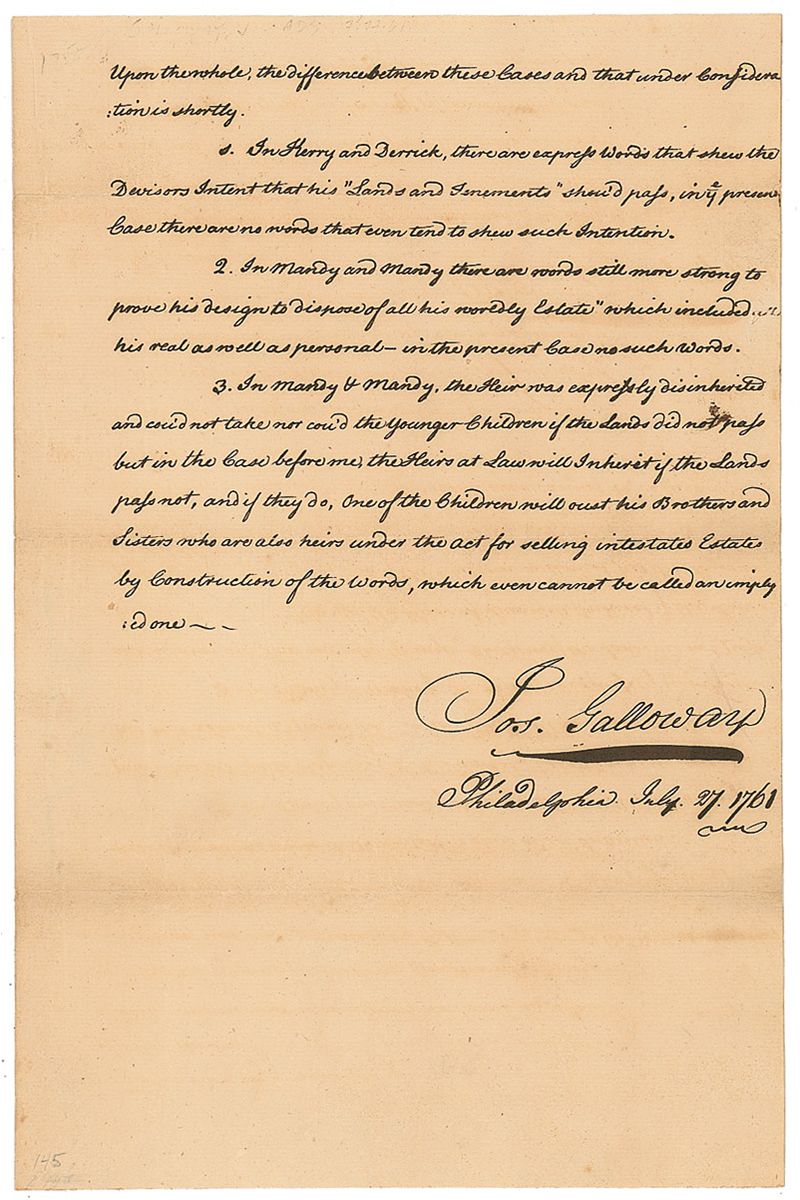 Upon the whole, the difference between these Cases and that under Considera
:tion is shortly.
1. In Kerry and Derrick, there are express Words that shew the
Devisors Intent that his "Lands and Tenements" shou'd pass, in yᵉ present
Case there are no words that even tend to shew such Intention.
2. In Mandy and Mandy there are words still more strong to
prove his design to dispose of all his woredly Estate" which included
his real as well as personal — in the present Case no such Words.
3. In Mandy & Mandy, the Heir was expressly disinherited
and cou'd not take nor cou'd the younger Children if the Lands did not pass
but in the Case before me, the Heirs at Law will Inherit if the Lands
pass not, and if they do, One of the Children will oust his Brothers and
Sisters who are also heirs under the Act for selling intestates Estates
by Construction of the Words, which even cannot be called an imply
:ed one —
Jos. Galloway
Philadelphia July. 27. 1761
145